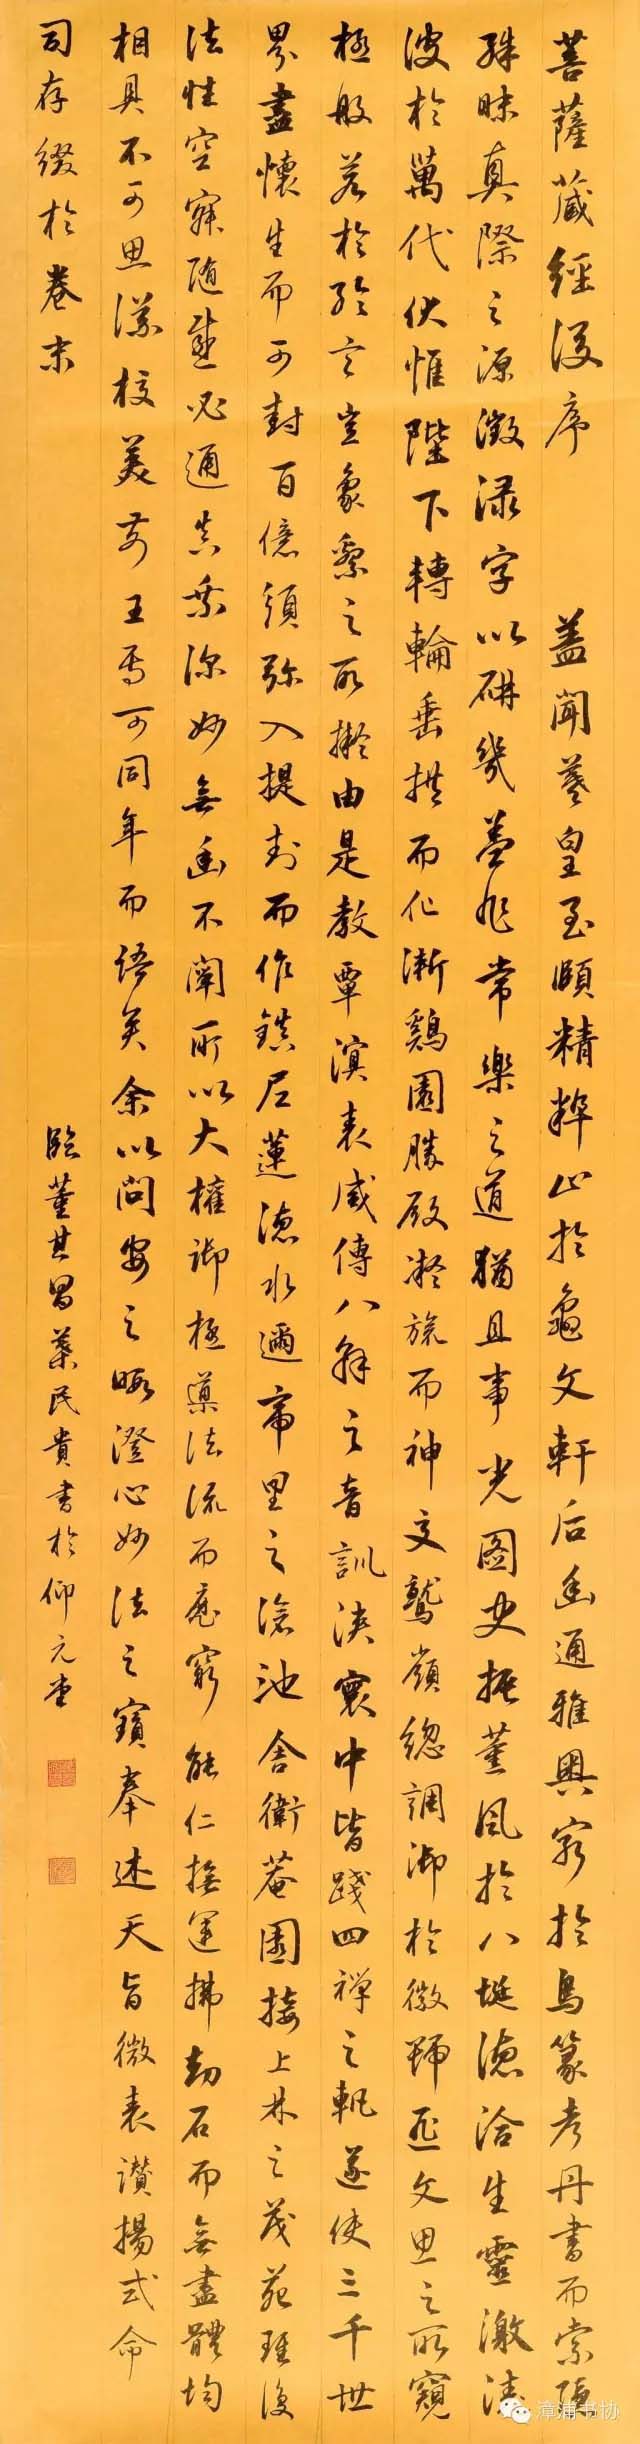 菩薩藏經後序 蓋聞羲皇至賾精粹止於龜文軒后幽通雅奧窮於鳥篆考丹書而索隱
殊昧真際之源徵淥字以研幾蓋非常樂之道猶且事光圖史振薰風於八埏德洽生靈激清
波於萬代伏惟陛下轉輪垂拱而化漸鷄園勝殿凝旒而神交鷲嶺總調御於徽號匪文思之所窺
極般若於綸言豈象繫之所擬由是教覃溟表咸傳八解之音訓浹寰中皆踐四禪之軌遂使三千世
界盡懷生而可封百億須弥入提封而作鎮尼蓮德水邇帝里之滄池舍衛菴園接上林之茂苑雖復
法性空寂隨感必通真乘深妙無幽不闡所以大權御極導法流而靡窮能仁撫運拂劫石而無盡體均
相具不可思議校美前王焉可同年而語矣余以問安之暇澄心妙法之寶奉述天旨微表讚揚式命
司存綴於卷末
臨董其昌葉民貴書於仰元堂
漳浦书协